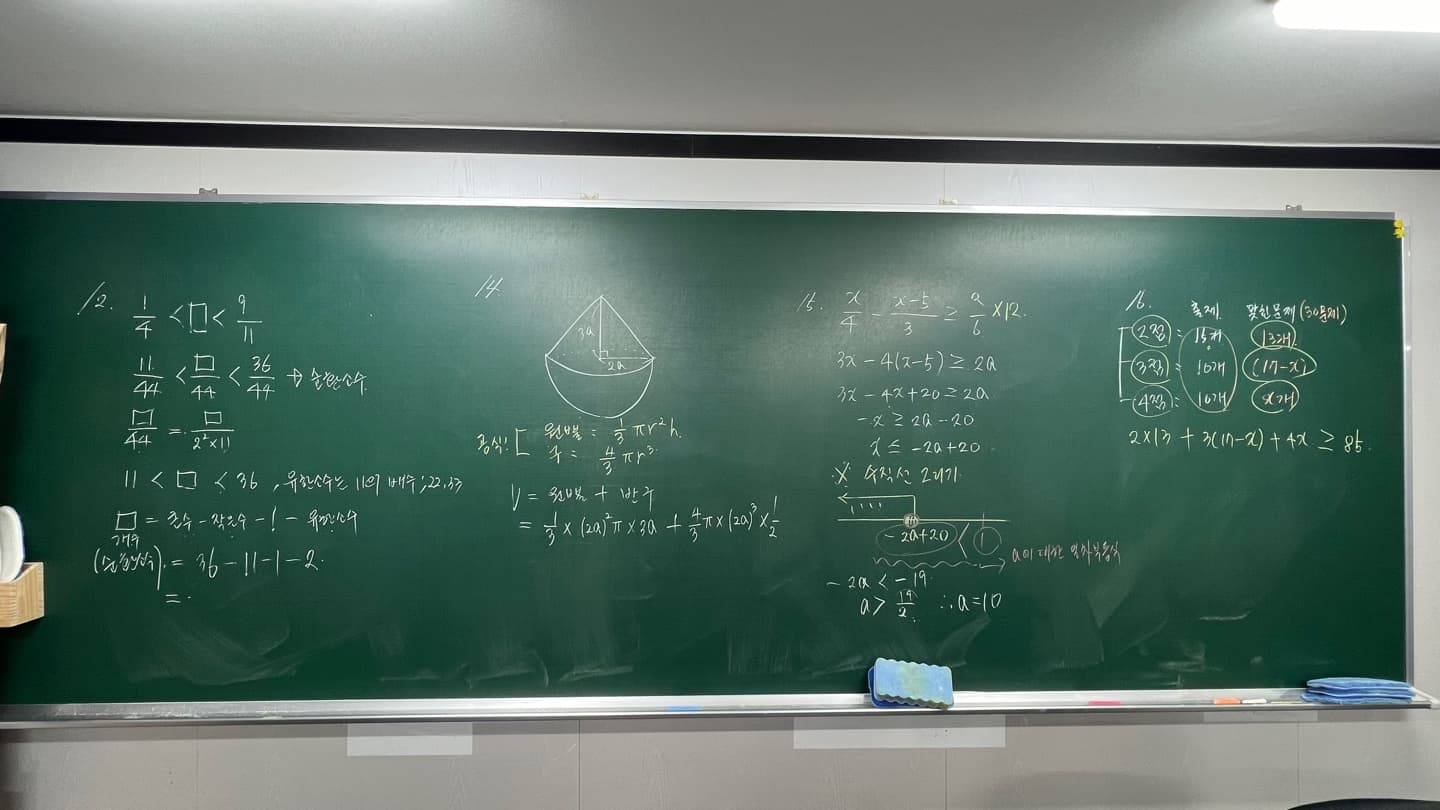 12.
1/4 < □ < 9/11
11/44 < □/44 < 36/44 → 순환소수
□/44 = □/2²×11
11 < □ < 36, 유한소수는 11의 배수; 22, 33
□ = 큰수 - 작은수 - 1 - 유한소수
개수
(순환소수) = 36 - 11 - 1 - 2.
= .
14.
3a
2a
공식: 원뿔 = 1/3 πr²h.
구 = 4/3 πr³
V = 원뿔 + 반구
= 1/3 × (2a)²π × 3a + 4/3 π × (2a)³ × 1/2
15. x/4 - (x-5)/3 ≥ a/6 ×12.
3x - 4(x-5) ≥ 2a
3x - 4x + 20 ≥ 2a
-x ≥ 2a - 20
x ≤ -2a + 20
※ 수직선 그리기
-2a+20 < 1
a에 대한 일차부등식
-2a < -19
a > 19/2 ∴ a=10
16. 출제 맞힌문제 (30문제)
2점: 15개 13개
3점: 10개 (17-x)
4점: 10개 x개
2×13 + 3(17-x) + 4x ≥ 85.